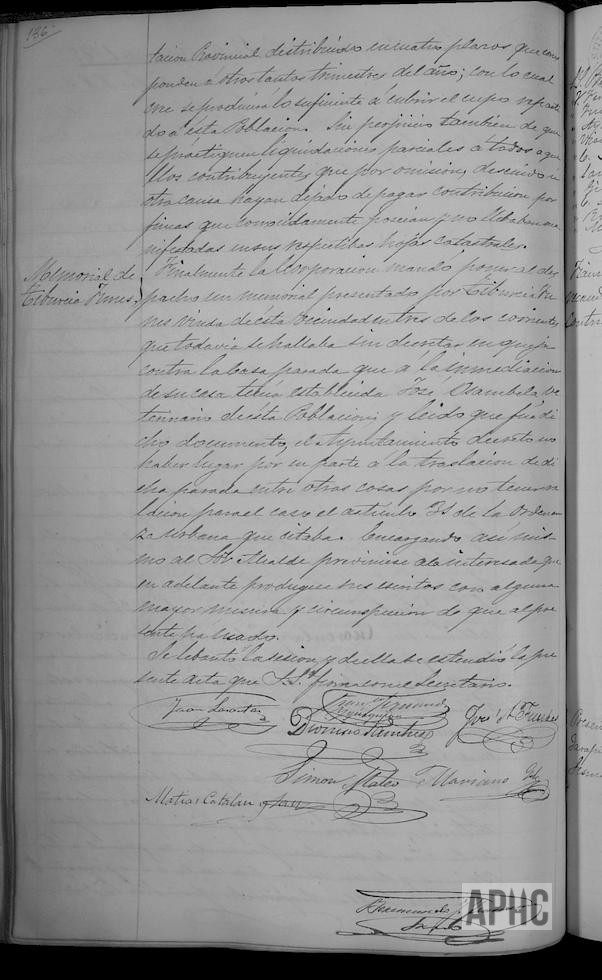 136
tacion Provincial distribuido en cuatro plazos que corres
ponden á otros tantos trimestres del año; con lo cual
cree se producirá lo suficiente á cubrir el cupo reparti
do á ésta Poblacion. Sin perjuicio tambien de que
se práctiquen liquidaciones parciales á todos aque
llos contribuyentes que por omision, descuido ú
otra causa hayan dejado de pagar contribucion por
fincas que conocidamente poseian y no llebaban ma
nifestadas en sus respetibas hojas catastrales.
Memorial de
Tiburcia Funes.
Finalmente la Corporacion mandó poner al des
pacho un memorial presentado por Tiburcia Fu
nes viuda de ésta Vecindad en tres de los corrientes
que todavia se hallaba sin decretar en queja
contra la casa parada que á la inmediacion
de su casa tenia establecida José Osambela ve
terinario de ésta Poblacion; y leido que fué di
cho documento, el Ayuntamiento decretó no
haber lugar por su parte á la traslacion de di
cha parada entre otras cosas por no tener re
lacion para el caso el artículo 35 de la Ordenan
za urbana que citaba. Encargando asi mis
mo al Sor. Alcalde previniese á la interesada que
en adelante produgese sus escritos con alguna
mayor mesura y circunspeccion de que al pre
sente há usado.
Se lebantó la sesion y de ella se estendió la pre
sente acta que S.S.ª firma con el Secretario.
Juan
Dionisio Sanchez
José
Simon Mateo
Mariano
Matias Catalan
Raimundo
APHC